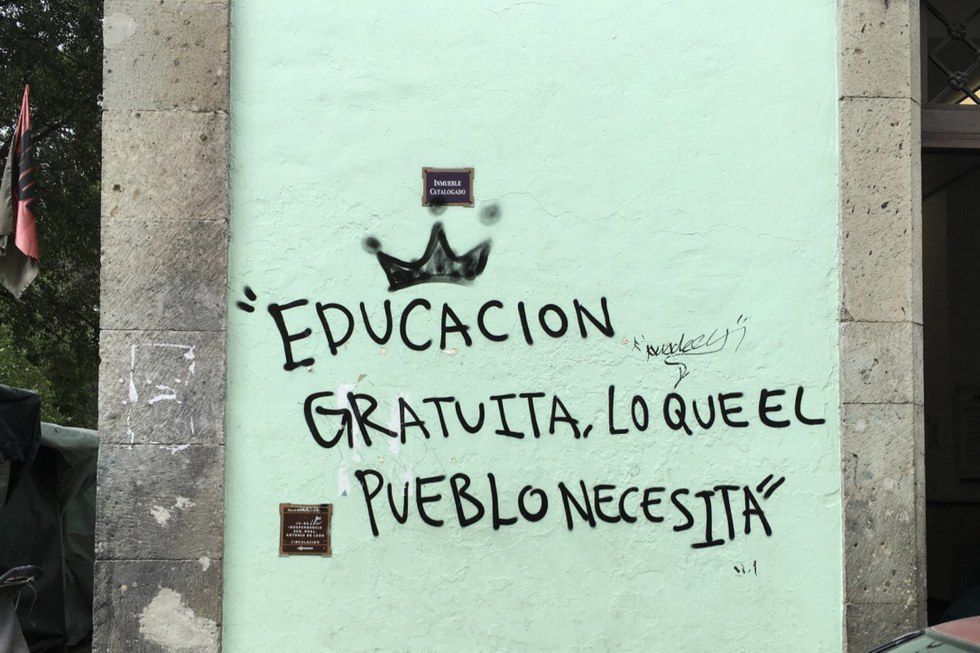 INMUEBLE
CATALOGADO
"EDUCACION
GRATUITA, LO QUE EL
PUEBLO NECESITA"
INDEPENDENCIA
ANTONIO DE LEÓN
CIRCULACIÓN